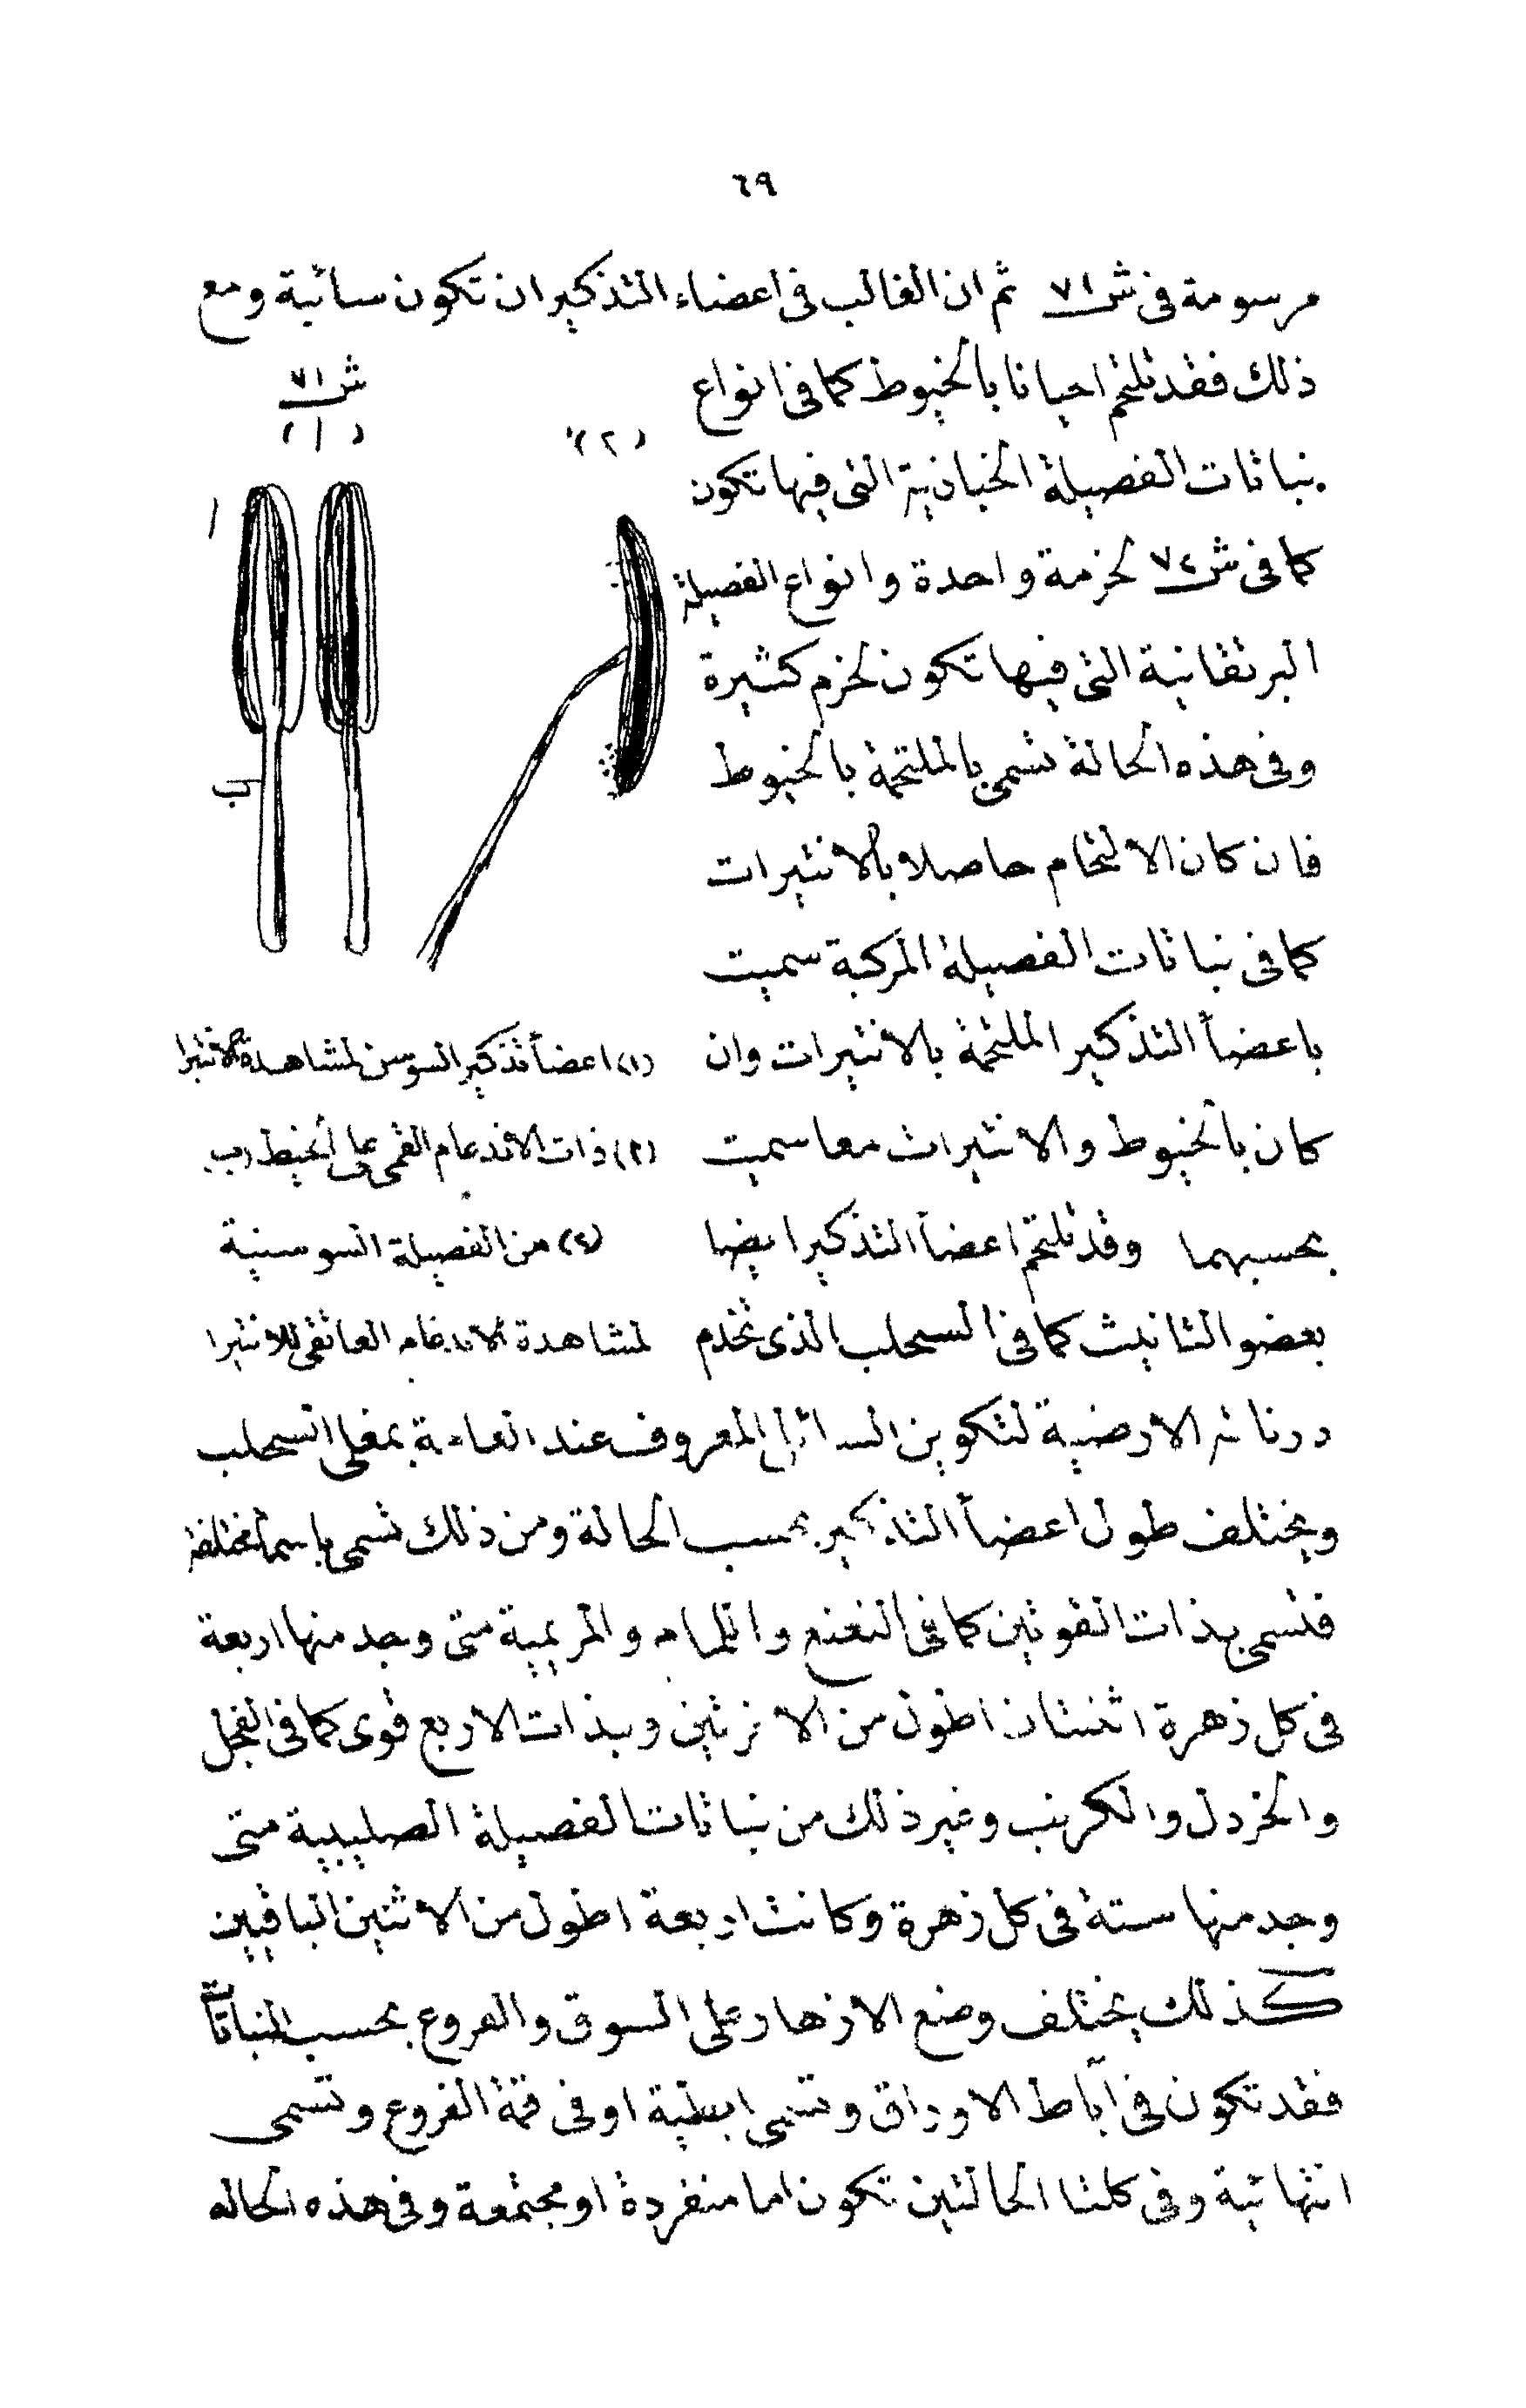 ٦٩
مرسومة فى ش٧١ ثم ان الغالب فى اعضاء التذكير ان تكون سائبة ومع
ذلك فقد تلتحم احيانا بالخيوط كما فى انواع
نباتات الفصيلة الخبازية التى فيها تكون
كما فى ش٧٢ لحزمة واحدة وانواع الفصيلة
البرتقانية التى فيها تكون لحزم كثيرة
وفى هذه الحالة تسمى بالملتحمة بالخيوط
فان كان الالتحام حاصلا بالانتيرات
كما فى نباتات الفصيلة المركبة سميت
باعضأ التذكير الملتحمة بالانتيرات وان
كان بالخيوط والانتيرات معا سميت
بحسبهما وقد تلتحم اعضأ التذكير ايضا
بعضو التانيث كما فى السحلب الذى تخدم
ش٧١
(١) (٢)
ا
ب
(١) اعضأ تذكير السوسن لمشاهدة الانتيرا
(٢) ذات الاندغام القمى على الخيط (ب)
(٢) من الفصيلة السوسنية
لمشاهدة الاندغام العاتقى للانتيرا
درناته الارضية لتكوين السائل المعروف عند العامة بمغلى السحلب
ويختلف طول اعضأ التذكير بحسب الحالة ومن ذلك تسمى باسمأ مختلفة
فتسمى بذات القوتين كما فى النعنع والتمام والمريمية متى وجد منها اربعة
فى كل زهرة اثنتان اطول من الاخرتين وبذات الاربع قوى كما فى الفجل
والخردل والكرنب وغير ذلك من نباتات الفصيلة الصليبية متى
وجد منها ستة فى كل زهرة وكانت اربعة اطول من الاثنين الباقيين
كذلك يختلف وضع الازهار على السوق والفروع بحسب النباتات
فقد تكون فى آباط الاوراق وتسمى ابطية او فى قمة الفروع وتسمى
انتهائية وفى كلتا الحالتين تكون اما منفردة او مجتمعة وفى هذه الحاله